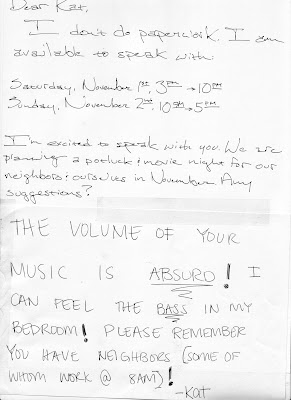 Dear Kat,
I don't do paperwork. I am
available to speak with
Saturday, November 1st, 3PM → 10PM
Sunday, November 2nd. 10AM → 5PM
I'm excited to speak with you. We are
planning a potluck & movie night for our
neighbors & ourselves in November. Any
suggestions?
THE VOLUME OF YOUR
MUSIC IS ABSURD! I
CAN FEEL THE BASS IN MY
BEDROOM! PLEASE REMEMBER
YOU HAVE NEIGHBORS (SOME OF
WHOM WORK @ 8AM)!
-Kat